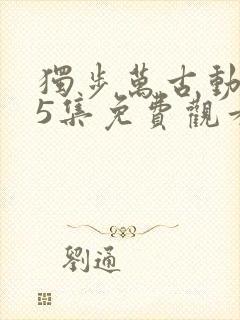 獨步萬古動
5集免費觀
劉通